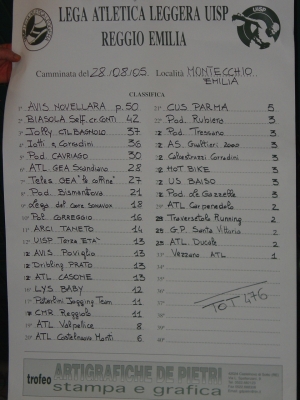 LEGA ATLETICA LEGGERA UISP
REGGIO EMILIA
Camminata del 28/08/05. Località MONTECCHIO EMILIA
CLASSIFICA
1° AVIS NOVELLARA p. 50
2° BIASOLA Self. cr. GENTI 42
3° Jolly C/LBAGNOLO 37
4° Iotti e Corradini 36
5° Pod. CAVRIAGO 30
6° ATL. GEA Scandiano 28
7° Tetes GEA "le colline" 27
8° Pod. Bismantova 21
9° 18
10° Pol. CORREGGIO 16
11° ARCI TANETO 14
12° UISP Terza ETA' 13
12 AVIS Poviglio 13
12 Dribling PRATO 13
12 ATL CASONE 13
16° LYS BABY 12
17° Paterlini Jogging Team 11
12 CMR Reggiolo 11
19° ATL Valpellice 8
20° ATL Castelnovo Monti 6
21° CUS PARMA 5
22° Pod. Rubiera 3
12 Pod. Tressano 3
12 AS. Gualtieri 2000 3
12 Calcestruzzi Corradini 3
12 HOT BIKE 3
12 US BAISO 3
12 Pod. Gazzelle 3
29° ATL Carpenedolo 2
29 Traversetolo Running 2
29 G.P. Santa Vittoria 2
29 ATL Ducale 2
33° Vezzano ATL 1
TOT 476
trofeo
ARTIGRAFICHE DE PIETRI
stampa e grafica